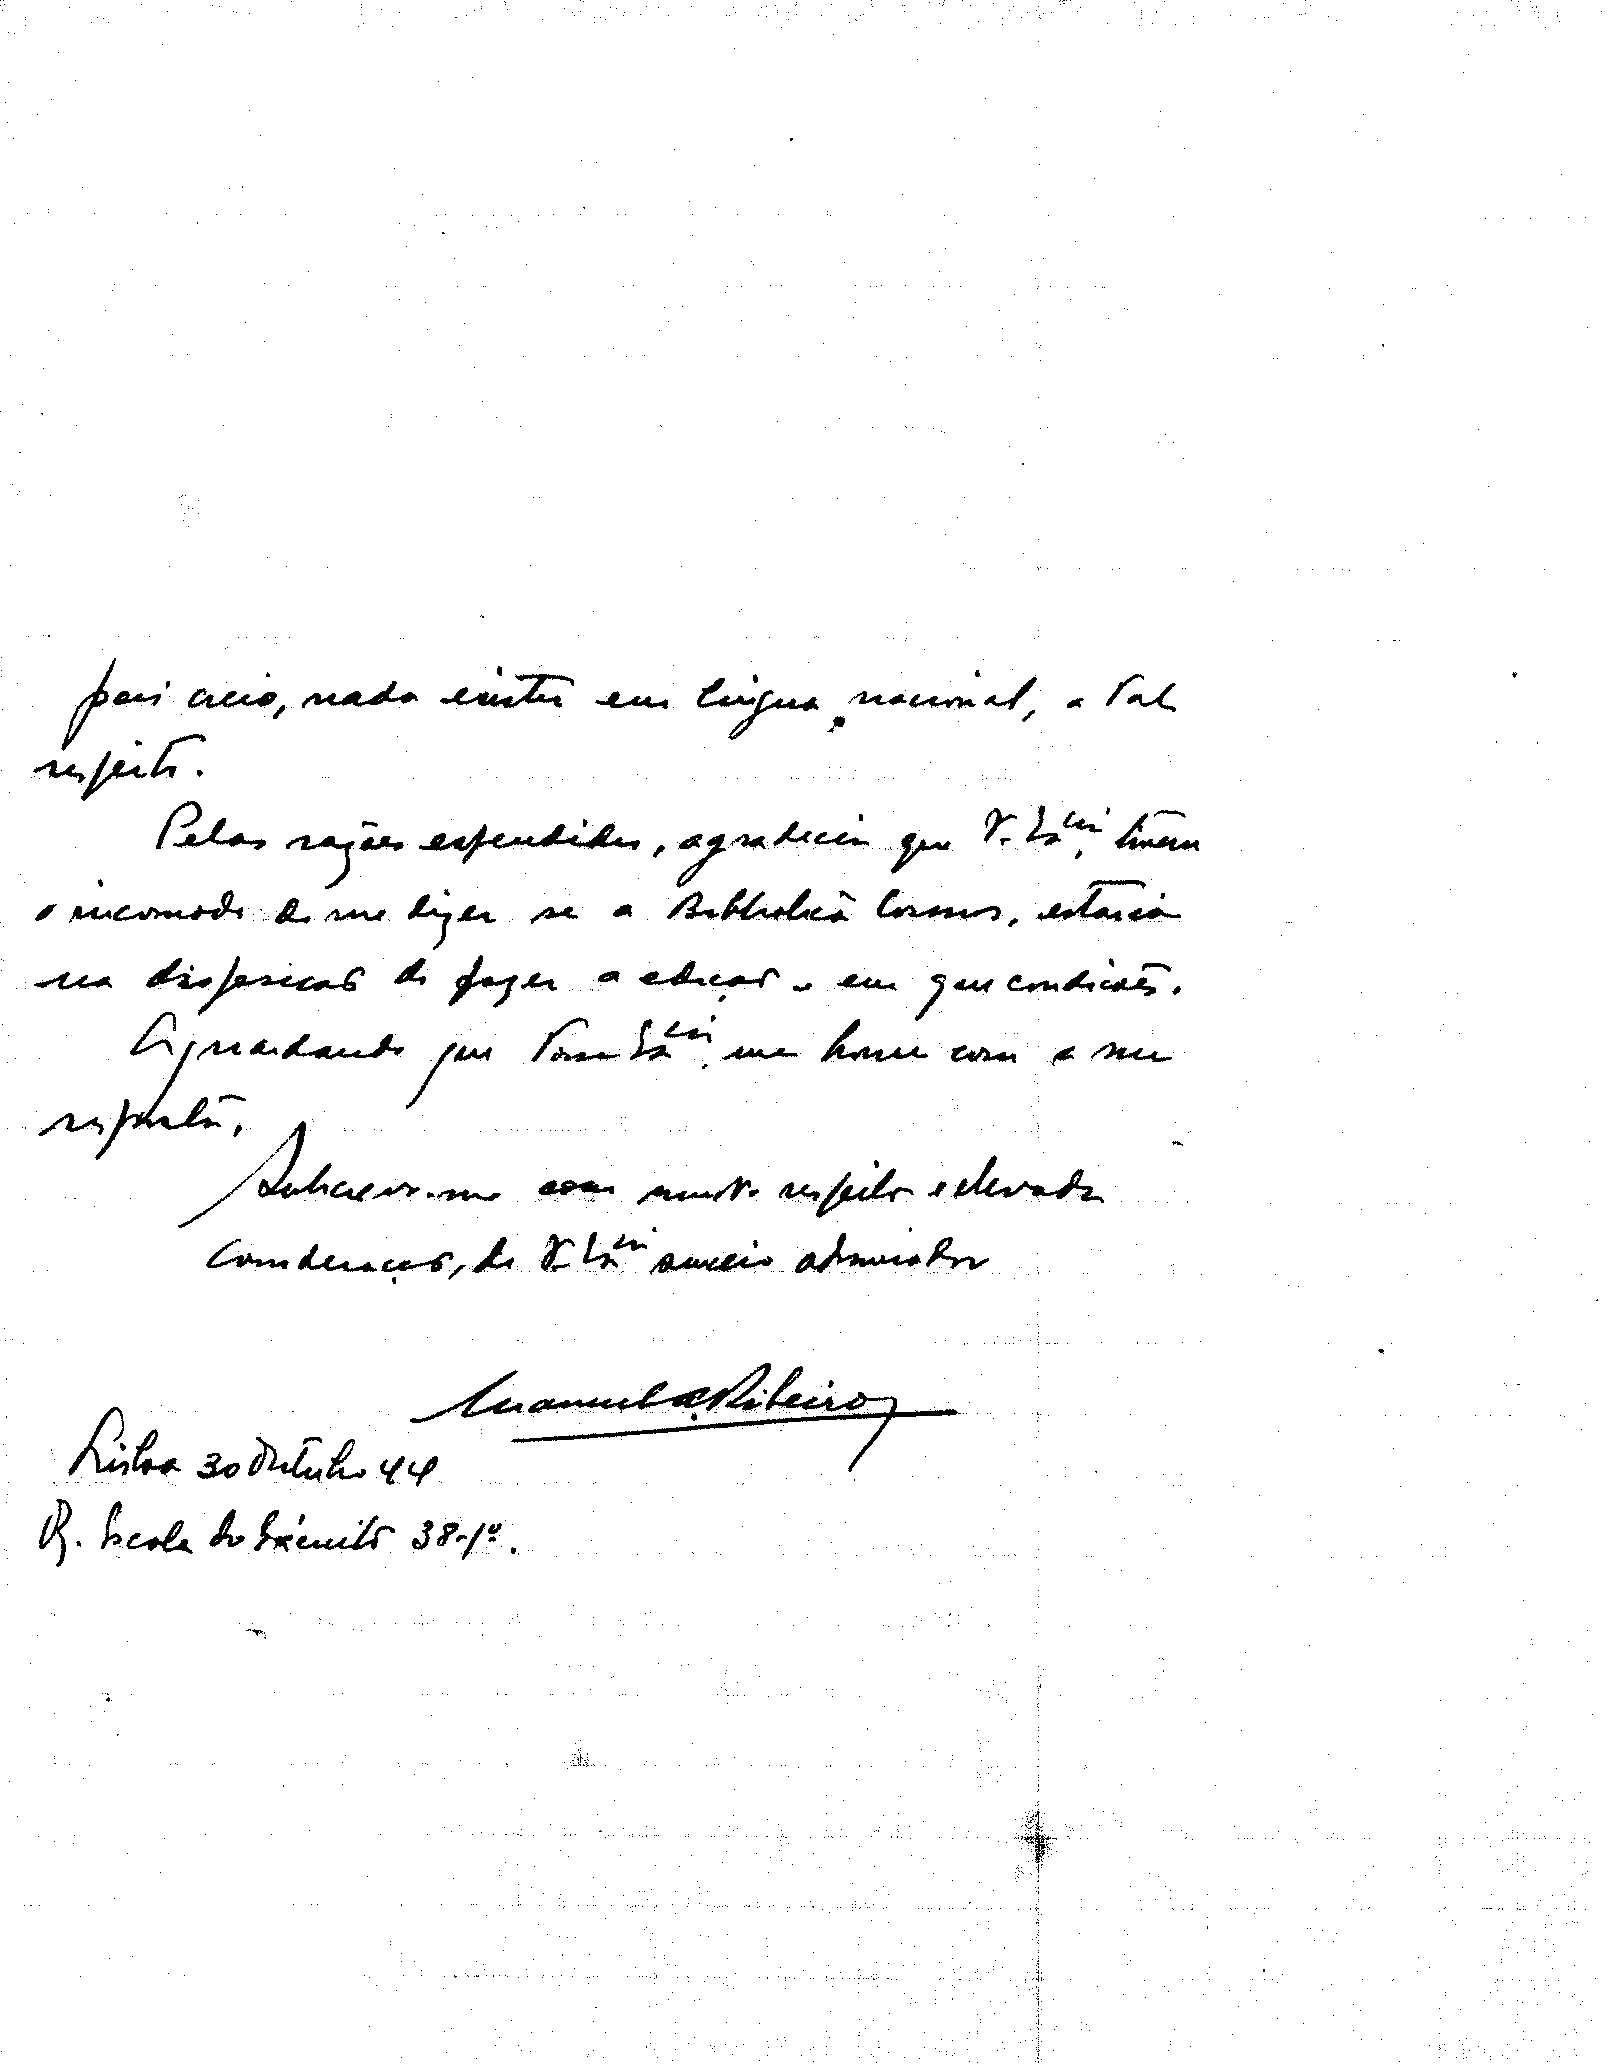 pois creio, nada existir em lingua nacional, a tal
respeito.
Pelas razões expendidas, agradecia que V. Exᶜⁱᵃ, tivesse
o incomodo de me dizer se a Biblioteca Cosmos, estaria
na disposição de fazer a edição e em que condicões.
Aguardando que Vossa Exᶜⁱᵃ, me honre com a sua
resposta,
Subscrevo-me com muito respeito e elevada
consideração, de V. Exᶜⁱᵃ sincero admirador
Manuel A. Ribeiro
Lisboa 30 Outubro 44
R. Escola do Exército 38-1º.